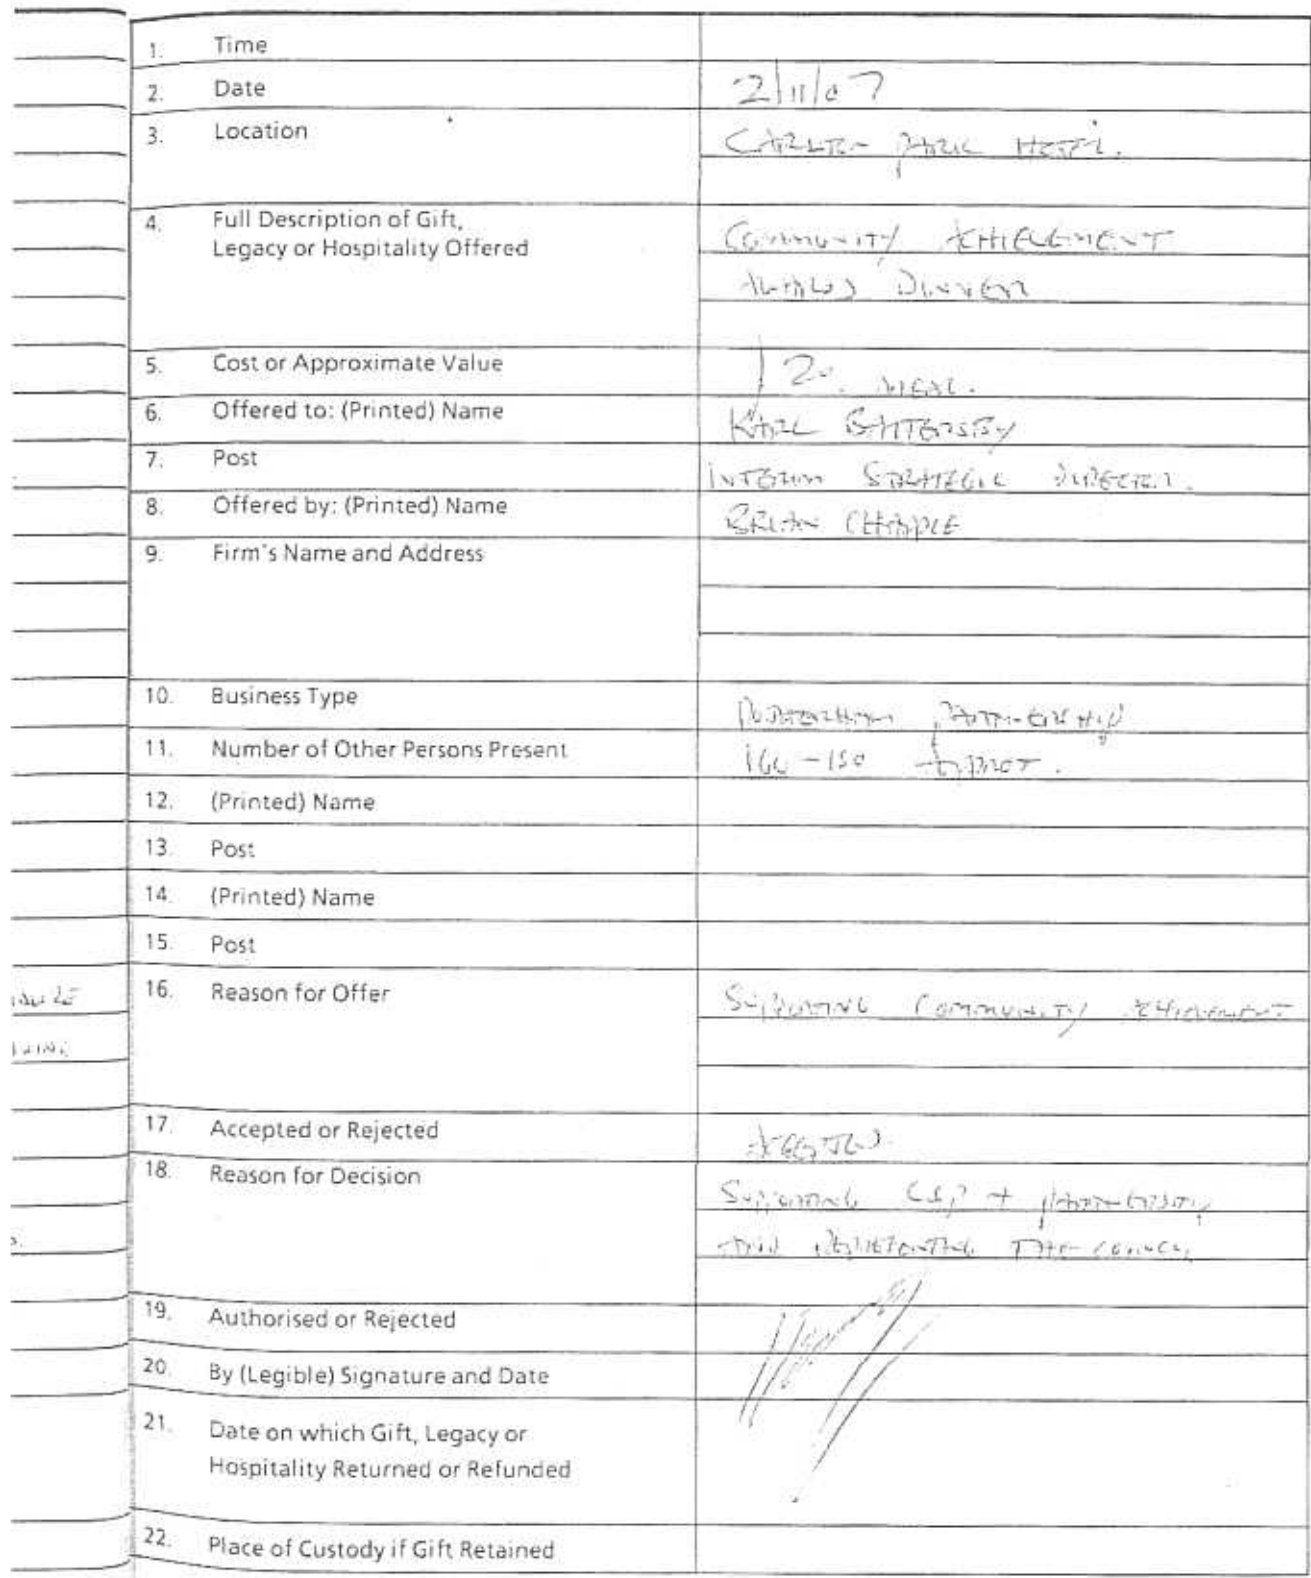 1. Time
2. Date 2/11/07
3. Location CARLTON PARK HOTEL.
4. Full Description of Gift,
Legacy or Hospitality Offered COMMUNITY ACHIEVEMENT
AWARDS DINNER
5. Cost or Approximate Value 20. MEAL.
6. Offered to: (Printed) Name KARL BATTERSBY
7. Post INTERIM STRATEGIC DIRECTOR.
8. Offered by: (Printed) Name BRIAN CHAPPLE
9. Firm's Name and Address
10. Business Type ROTHERHAM PARTNERSHIP
11. Number of Other Persons Present 100-150 APPROX.
12. (Printed) Name
13. Post
14. (Printed) Name
15. Post
16. Reason for Offer SUPPORTING COMMUNITY ACHIEVEMENT
17. Accepted or Rejected ACCEPTED.
18. Reason for Decision SUPPORTING LSP +
AND REPRESENTING THE COUNCIL
19. Authorised or Rejected
20. By (Legible) Signature and Date
21. Date on which Gift, Legacy or
Hospitality Returned or Refunded
22. Place of Custody if Gift Retained